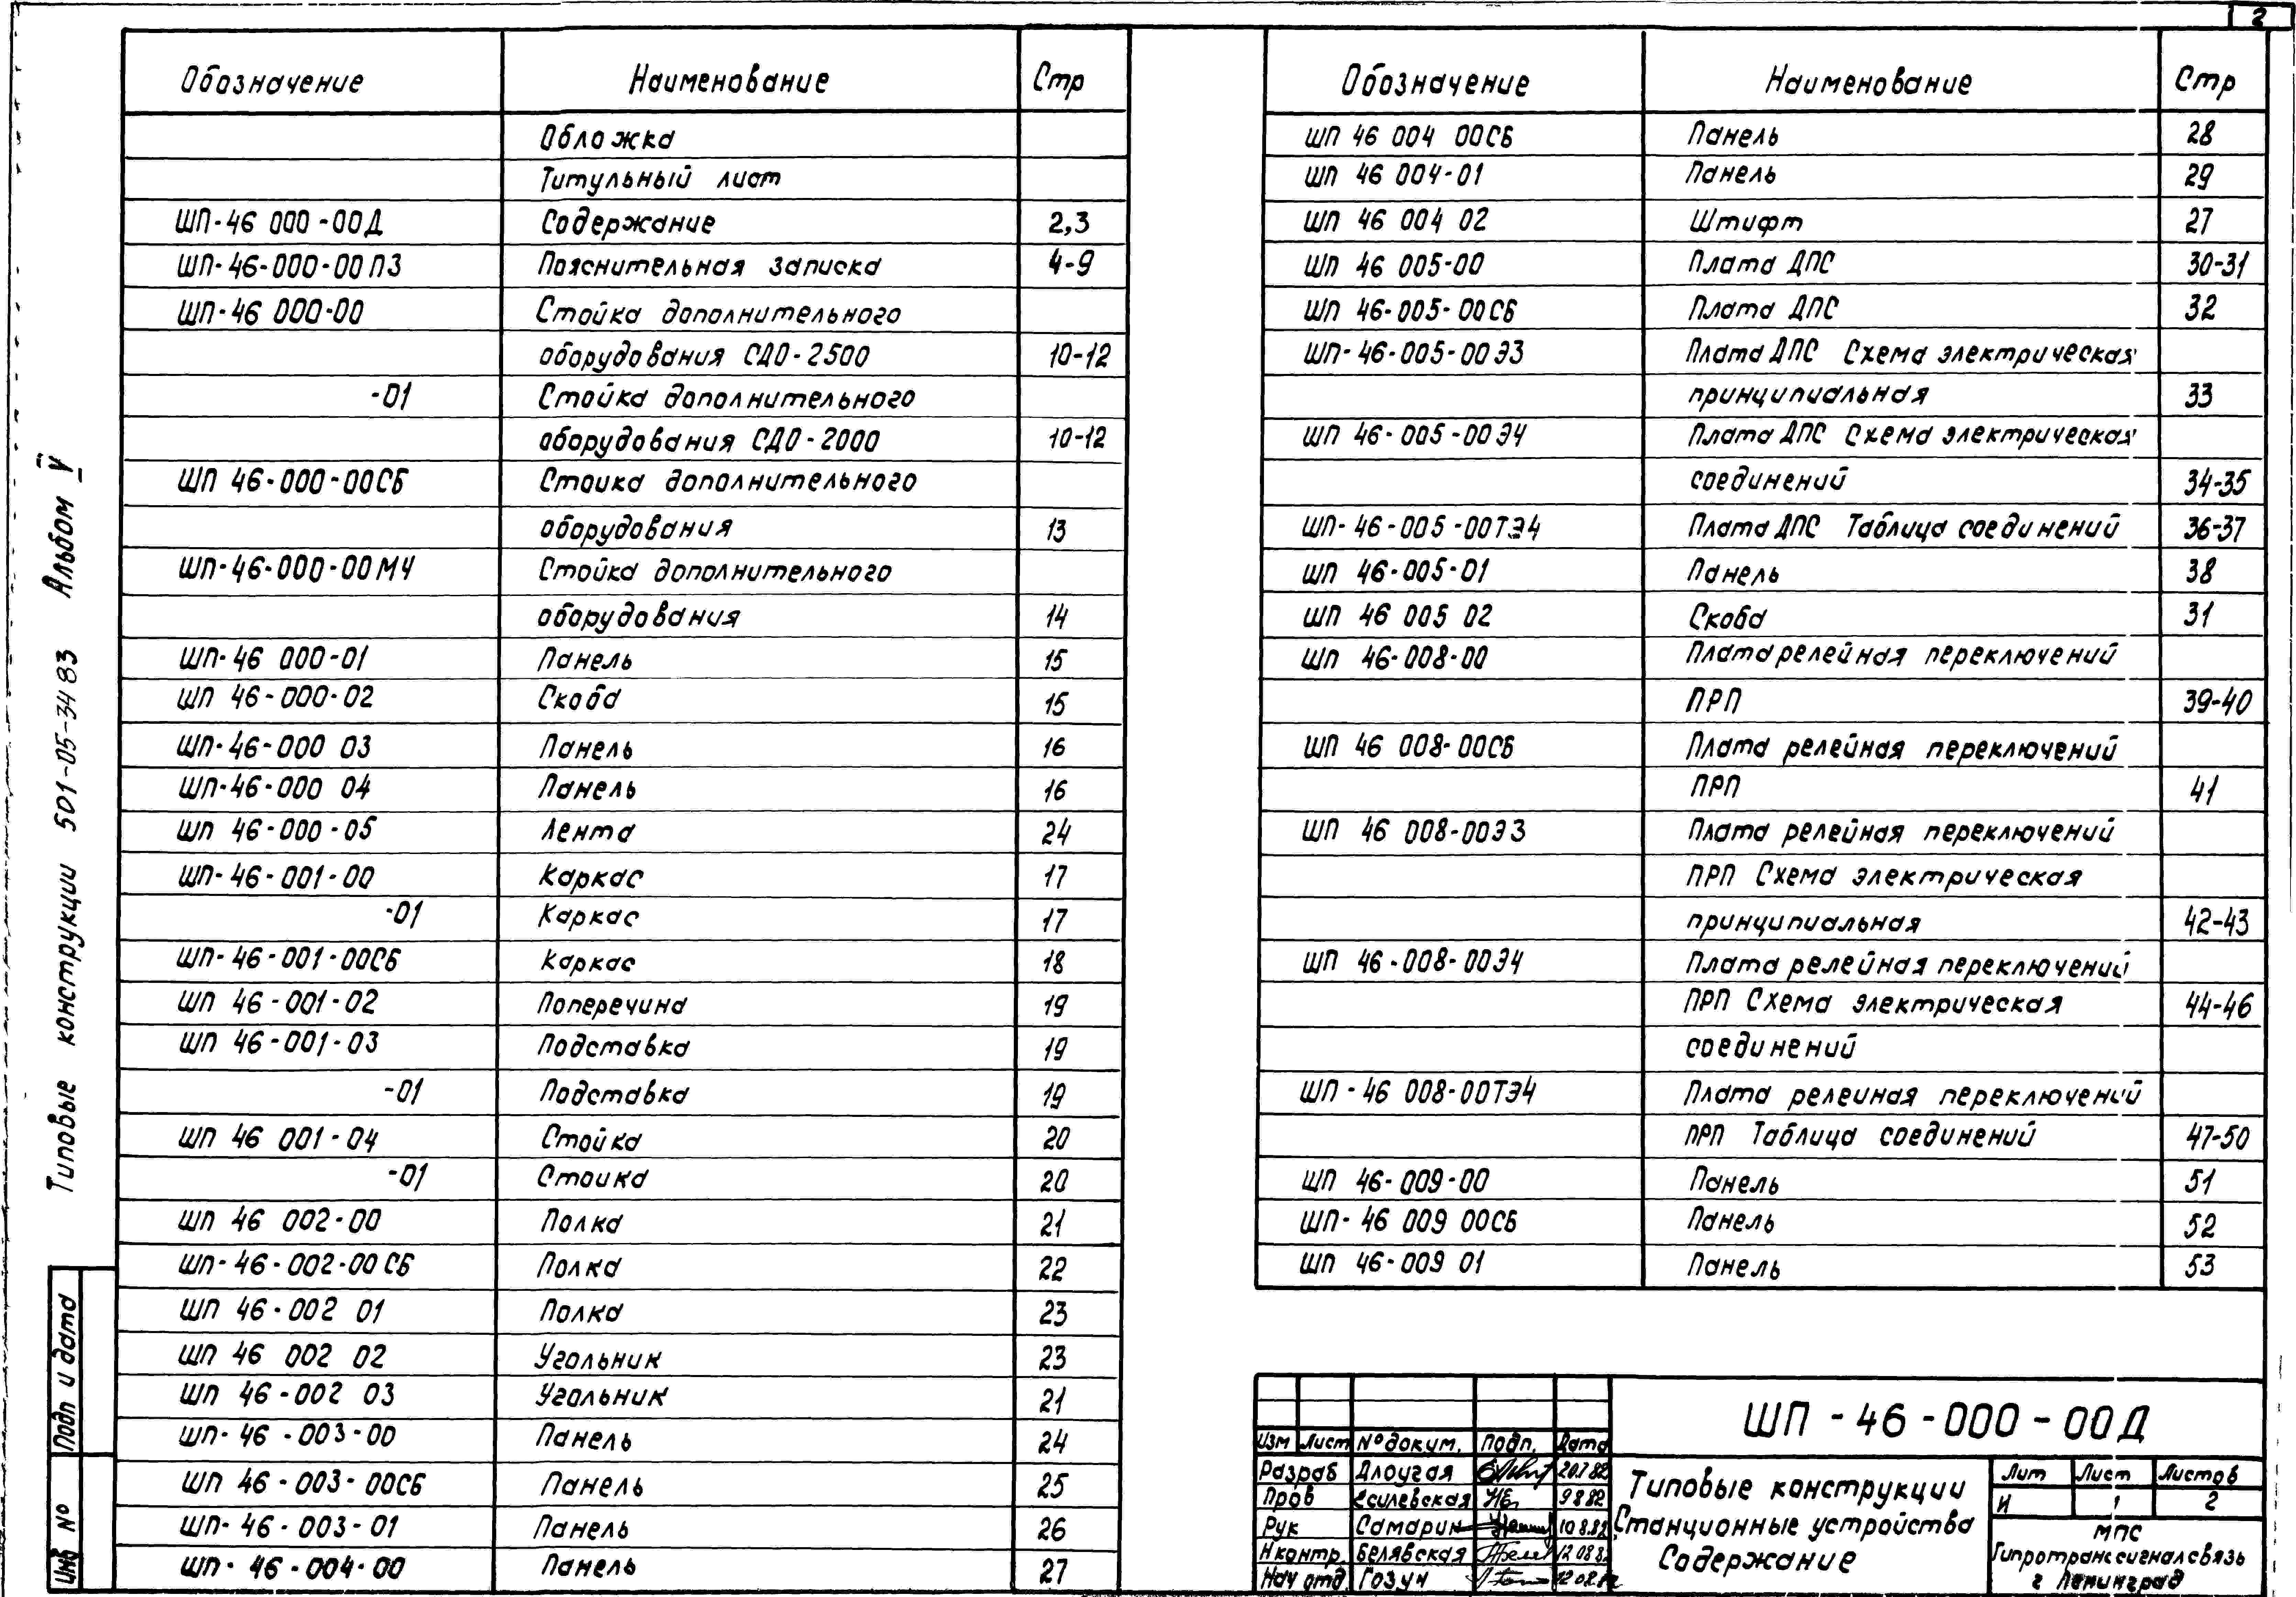 2
Обозначение Наименование Стр
Обложка
Титульный лист
ШП-46 000-00Д Содержание 2,3
ШП-46-000-00ПЗ Пояснительная записка 4-9
ШП-46 000-00 Стойка дополнительного
оборудования СДО-2500 10-12
-01 Стойка дополнительного
оборудования СДО-2000 10-12
ШП 46-000-00СБ Стоика дополнительного
оборудования 13
ШП-46-000-00МЧ Стойка дополнительного
оборудования 14
ШП-46 000-01 Панель 15
ШП 46-000-02 Скоба 15
ШП-46-000 03 Панель 16
ШП-46-000 04 Панель 16
ШП 46-000-05 Лента 24
ШП-46-001-00 Каркас 17
-01 Каркас 17
ШП-46-001-00СБ Каркас 18
ШП 46-001-02 Поперечина 19
ШП 46-001-03 Подставка 19
-01 Подставка 19
ШП 46 001-04 Стойка 20
-01 Стоика 20
ШП 46 002-00 Полка 21
ШП-46-002-00СБ Полка 22
ШП 46-002 01 Полка 23
ШП 46 002 02 Угольник 23
ШП 46-002 03 Угольник 21
ШП-46-003-00 Панель 24
ШП 46-003-00СБ Панель 25
ШП-46-003-01 Панель 26
ШП-46-004-00 Панель 27
Обозначение Наименование Стр
ШП 46 004 00СБ Панель 28
ШП 46 004-01 Панель 29
ШП 46 004 02 Штифт 27
ШП 46 005-00 Плата ДПС 30-31
ШП 46-005-00СБ Плата ДПС 32
ШП-46-005-00Э3 Плата ДПС Схема электрическая
принципиальная 33
ШП 46-005-00Э4 Плата ДПС Схема электрическая
соединений 34-35
ШП-46-005-00ТЭ4 Плата ДПС Таблица соединений 36-37
ШП 46-005-01 Панель 38
ШП 46 005 02 Скоба 31
ШП 46-008-00 Плата релейная переключений
ПРП 39-40
ШП 46 008-00СБ Плата релейная переключений
ПРП 41
ШП 46 008-00Э3 Плата релейная переключений
ПРП Схема электрическая
принципиальная 42-43
ШП 46-008-00Э4 Плата релейная переключений
ПРП Схема электрическая 44-46
соединений
ШП-46 008-00ТЭ4 Плата релеиная переключений
ПРП Таблица соединений 47-50
ШП 46-009-00 Панель 51
ШП-46 009 00СБ Панель 52
ШП 46-009 01 Панель 53
Типовые конструкции 501-05-34 83 Альбом V
Подп и дата
Инв №
ШП-46-000-00Д
Изм Лист № докум. Подп. Дата
Разраб Длоугая 20.7.82
Пров 9 8 82
Рук Самарин 10 8.82
Н контр. Белявская 12 08 82
Нач отд. Гозун 12 08.82
Типовые конструкции
Станционные устройства
Содержание
Лит Лист Листов
И 1 2
МПС
Гипротранссигналсвязь
г Ленинград